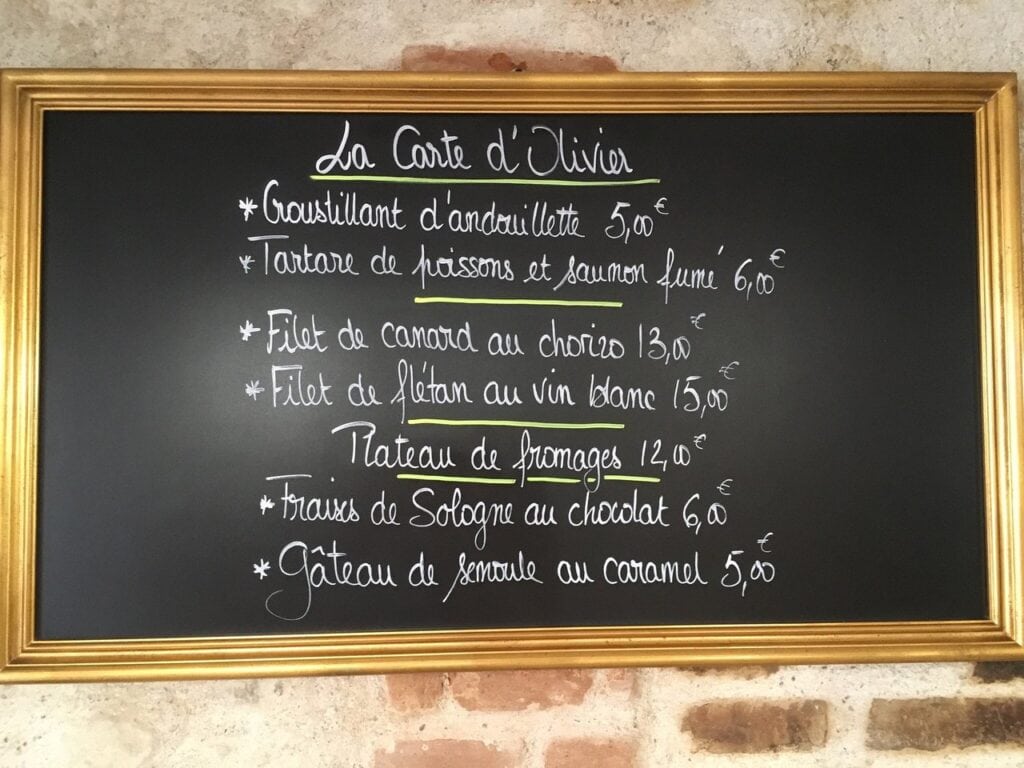 La Carte d'Olivier
* Croustillant d'andouillette 5,00€
* Tartare de poissons et saumon fumé 6,00€
* Filet de canard au chorizo 13,00€
* Filet de flétan au vin blanc 15,00€
Plateau de fromages 12,00€
* Fraises de Sologne au chocolat 6,00€
* Gâteau de semoule au caramel 5,00€